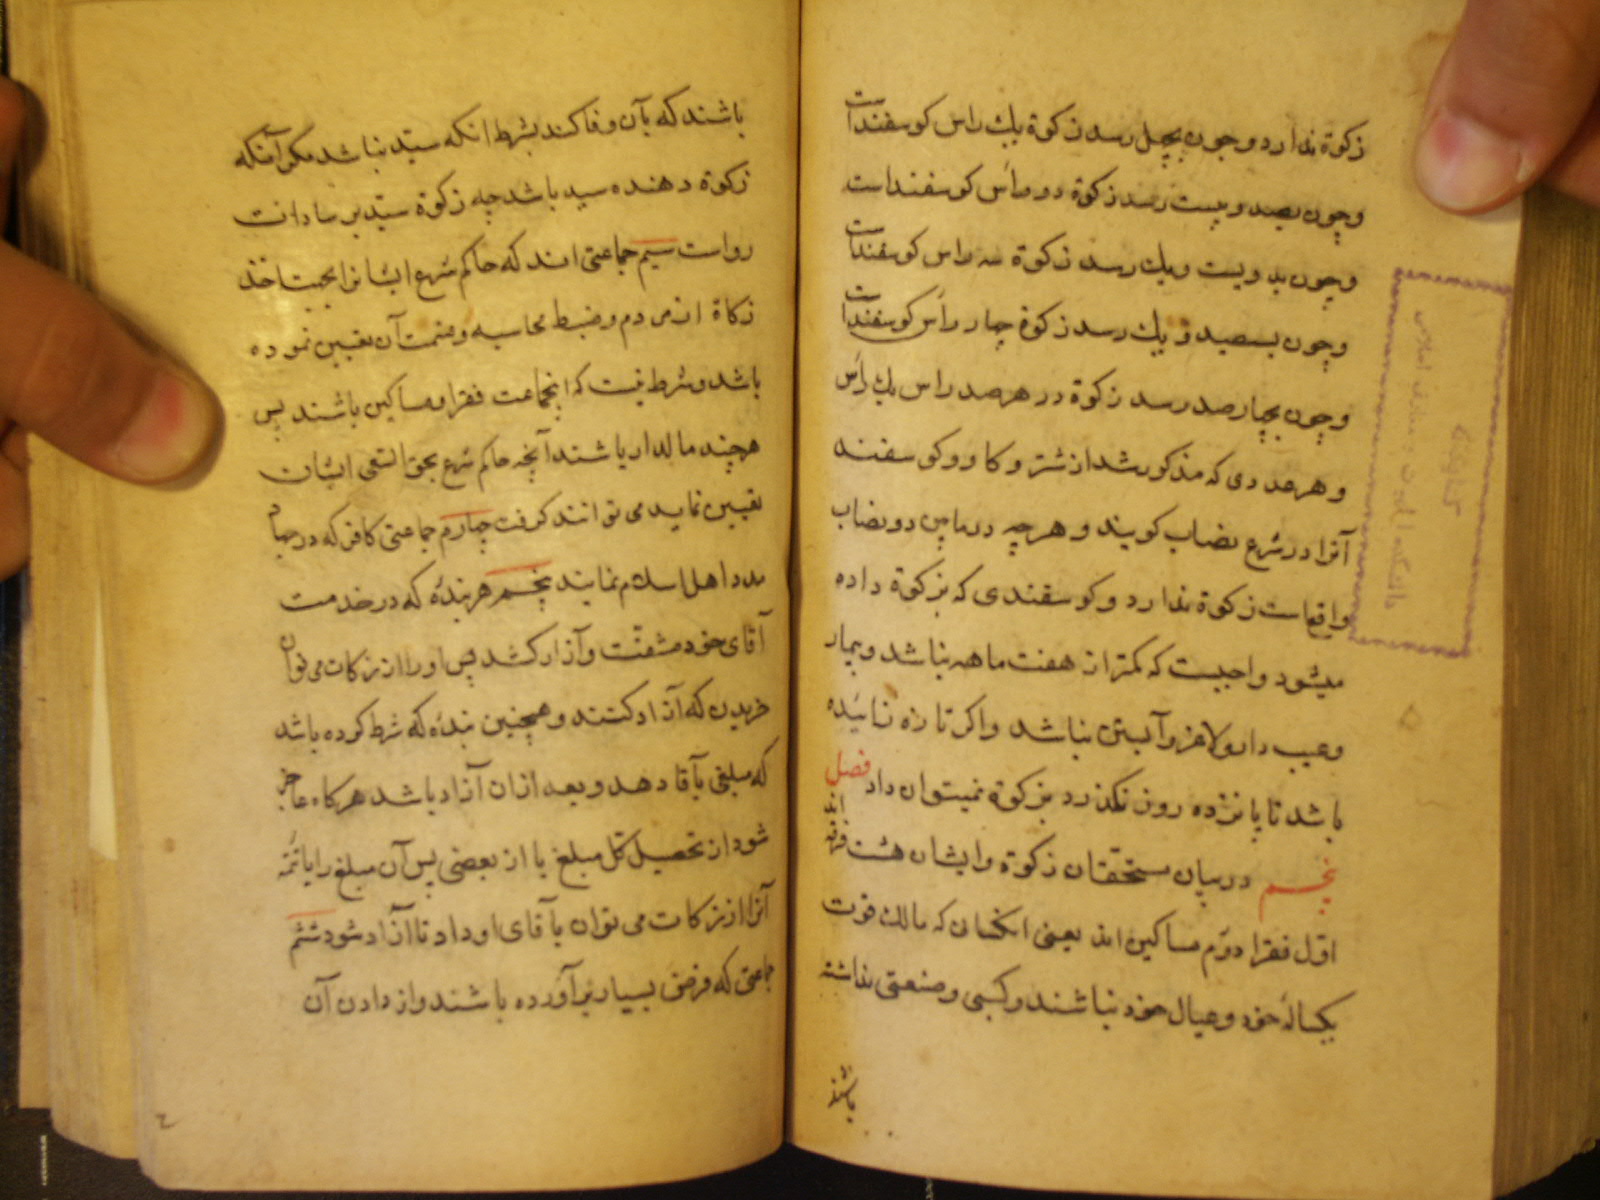 زکوة ندارد و چون بچهل رسد زکوة یک راس کوسفند است
و چون بصد و بیست رسد زکوة دو راس کوسفند است
و چون بد ویست و یک رسد زکوة سه راس کوسفند است
و چون بسیصد و یک رسد زکوة چهار راس کوسفند است
و چون بچهارصد رسد زکوة در هر صد راس یک راس
و هر عددی که مذکور شد از شتر و کاو و کوسفند
آنرا در شرع نصاب کویند و هر چه در میان دو نصاب
واقع است زکوة ندارد و کوسفندی که بزکوة داده
میشود واجبست که کمتر از هفت ماهه نباشد و بیمار
و عیب دار و لاغر و آبستن نباشد و اکر تازه زائیده
باشد تا پانزده روز نکذرد بزکوة نمیتوان داد فصل
پنجم در بیان مستحقان زکوة و ایشان هشت فرقه اند
اول فقرا دوم مساکین اند یعنی آنکسان که مالک قوت
یکساله خود و عیال خود نباشند و کسبی و صنعتی نداشته
باشند
باشند که بآن وفا کند بشرط انکه سید نباشد مکر آنکه
زکوة دهنده سید باشد چه زکوة سید بر سادات
رواست سیم جماعتی اند که حاکم شرع ایشانرا بجهت اخذ
زکاة از مردم و ضبط محاسبه و قسمت آن تعیین نموده
باشد و شرط نیست که اینجماعت فقرا و مساکین باشند پس
هرچند مالدار باشند آنچه حاکم شرع بحق السعی ایشان
تعیین نماید می توانند کرفت چهارم جماعتی کافر که در جهاد
مدد اهل اسلام نمایند پنجم هر بندهٔ که در خدمت
آقای خود مشقت و آزار کشد پس او را از زکات می توان
خریدن که آزاد کنند و همچنین بندهٔ که شرط کرده باشد
که مبلغی بآقا دهد و بعد از ان آزاد باشد هرکاه عاجز
شود از تحصیل کل مبلغ یا از بعضی پس آن مبلغ را یا تتمه
آنرا از زکات می توان بآقای او داد تا آزاد شود ششم
جماعتی که قرض بسیار برآورده باشند و از دادن آن